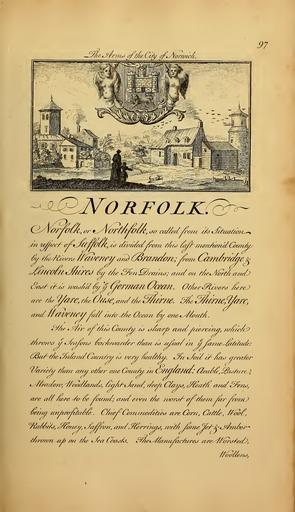 97
The Arms of the City of Norwich.
NORFOLK.
Norfolk, or Northfolk, so called from its Situation
in respect of Suffolk, is divided from this last mentioned County
by the Rivers Waveney and Brandon; from Cambridge &
Lincoln Shires by the Fen Drains; and on the North and
East it is wash'd by yͤ German Ocean. Other Rivers here
are the Yare, the Ouse, and the Thirne. The Thirne, Yare,
and Waveney fall into the Ocean by one Mouth.
The Air of this County is sharp and piercing, which
throws yͤ Seasons backwarder than is usual in yͤ same Latitude:
But the Inland Country is very healthy. In Soil it has greater
Variety than any other one County in England: Arable, Pasture,
Meadow, Woodlands, light Sand, deep Clays, Heath and Fens,
are all here to be found; and even the worst of them far from
being unprofitable. Chief Commodities are Corn, Cattle, Wool,
Rabbits, Honey, Saffron, and Herrings, with some Jet & Amber
thrown up on the Sea Coasts. The Manufactures are Worsted,
Woollens,